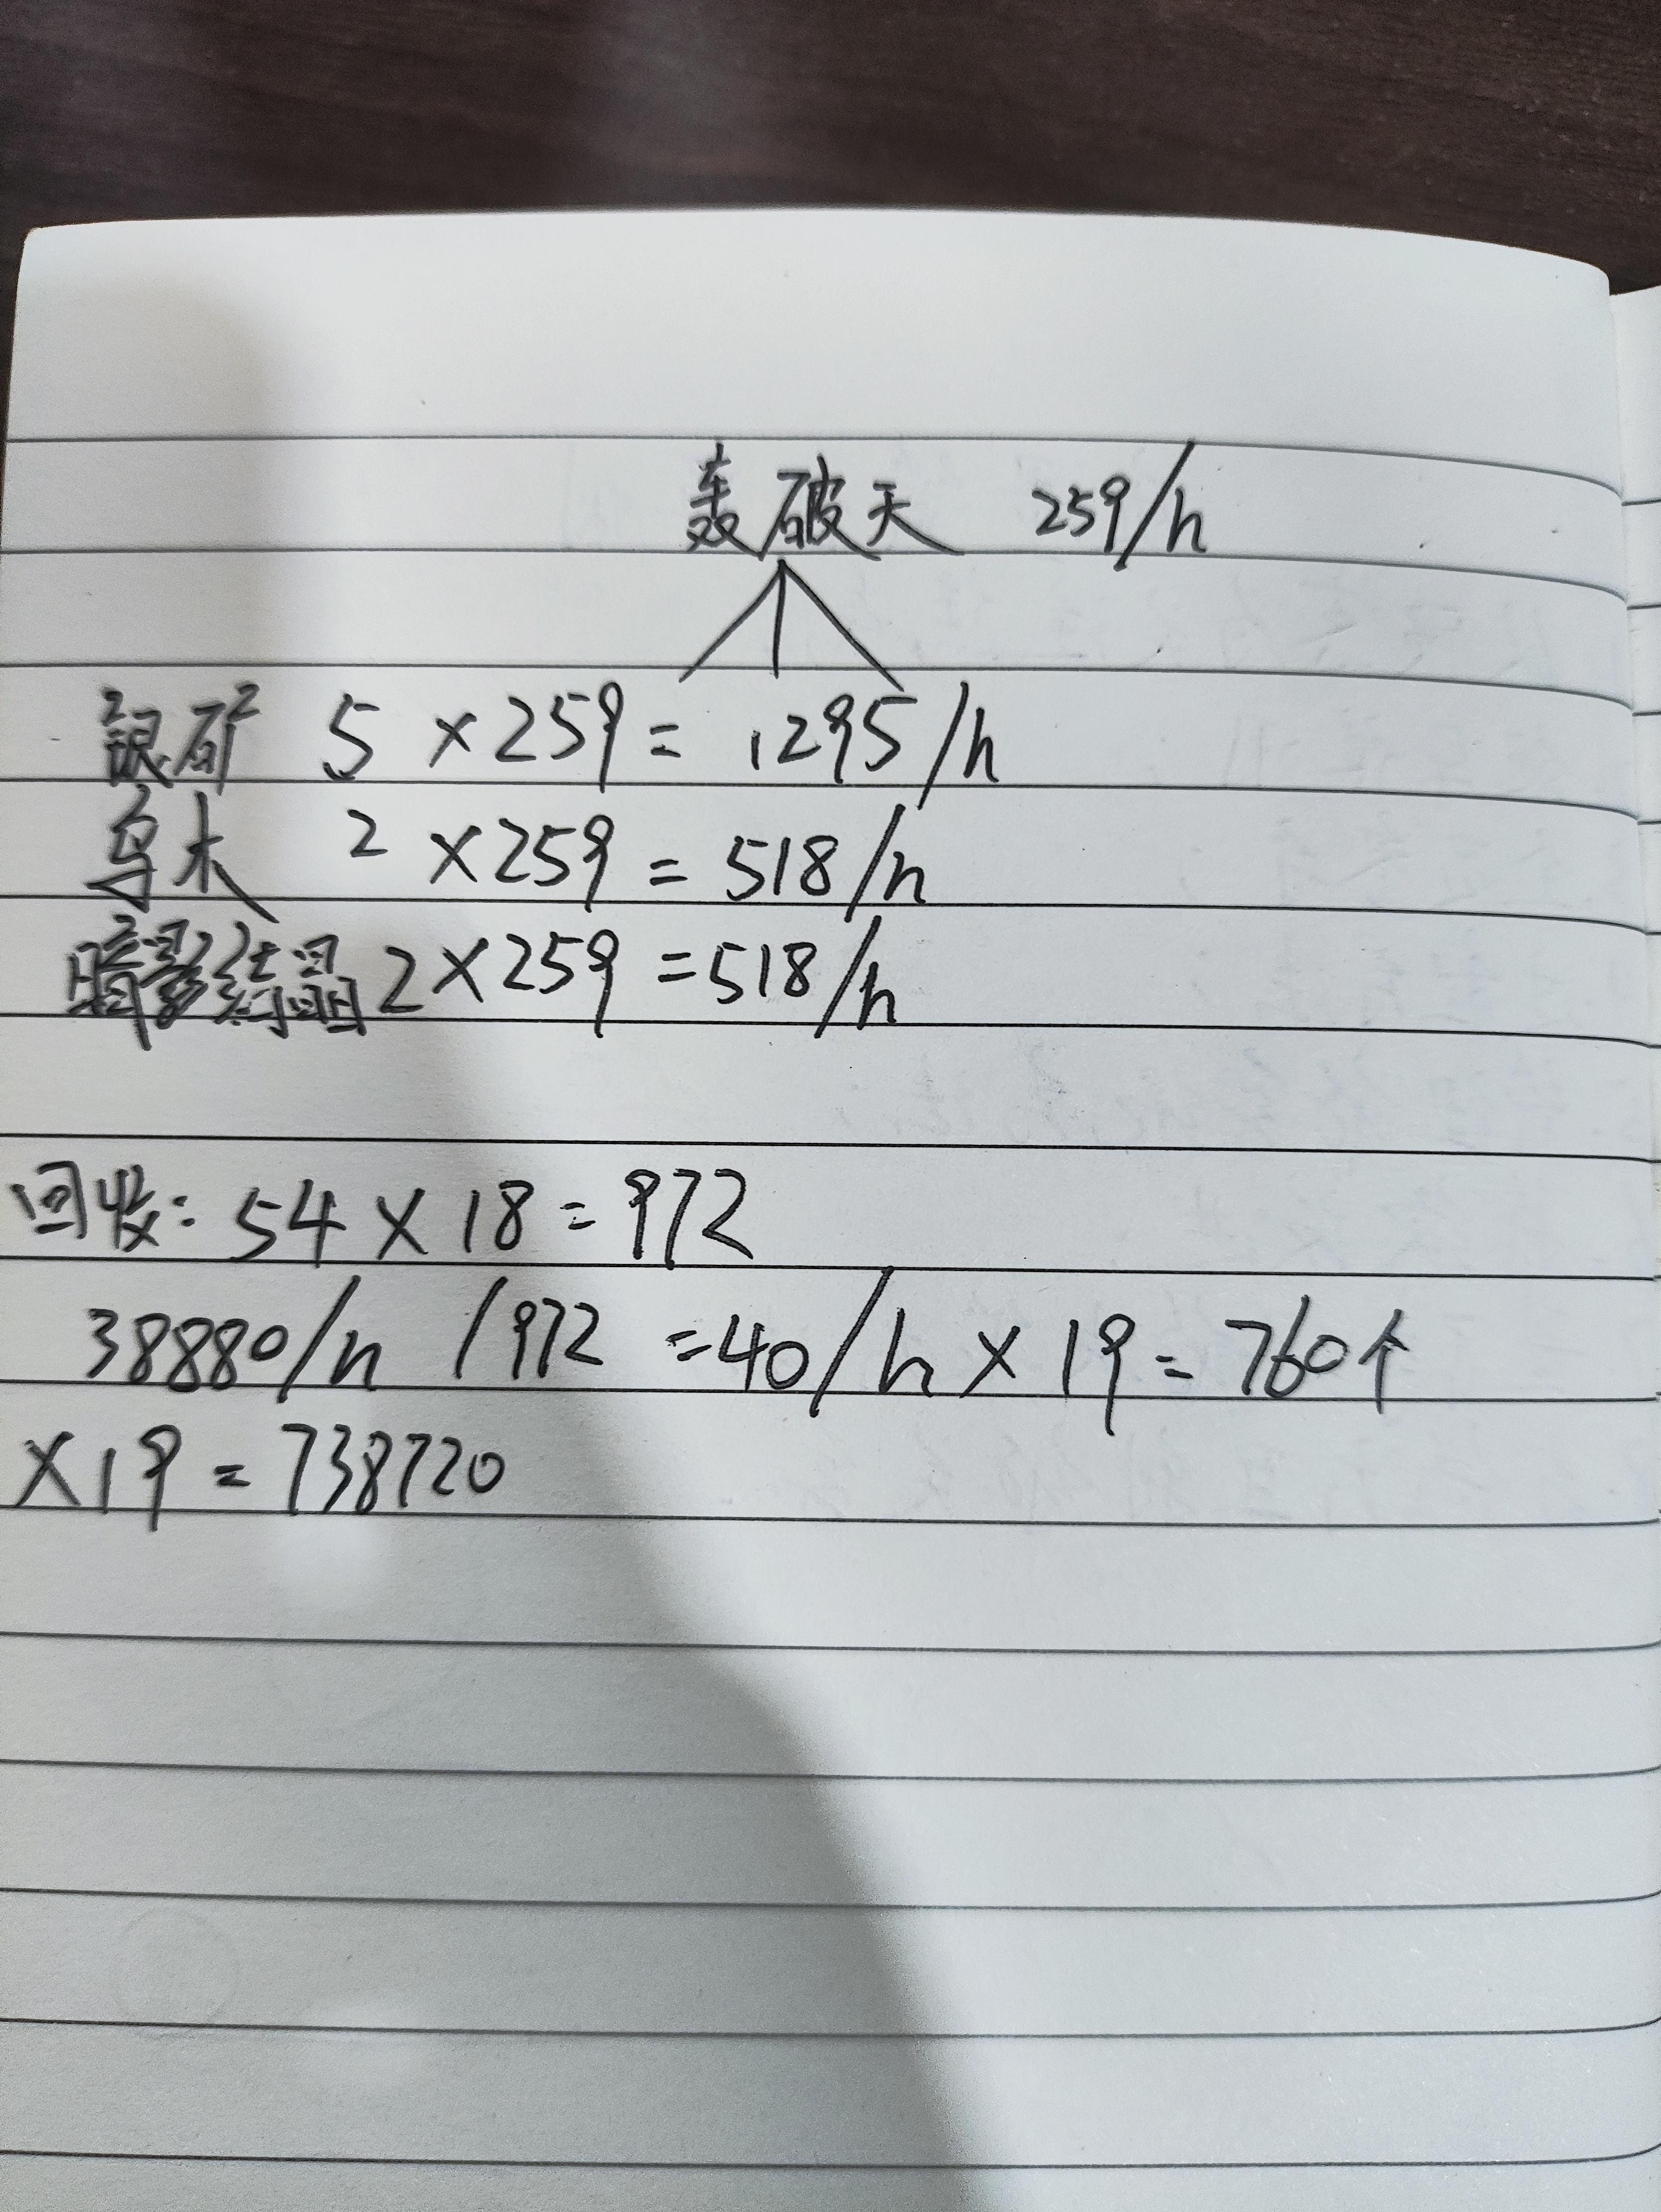 轰破天 259/h
银矿 5 × 259 = 1295/h
乌木 2 × 259 = 518/h
暗影结晶 2 × 259 = 518/h
回收: 54 × 18 = 972
38880/h /972 = 40/h × 19 = 760个
× 19 = 738720